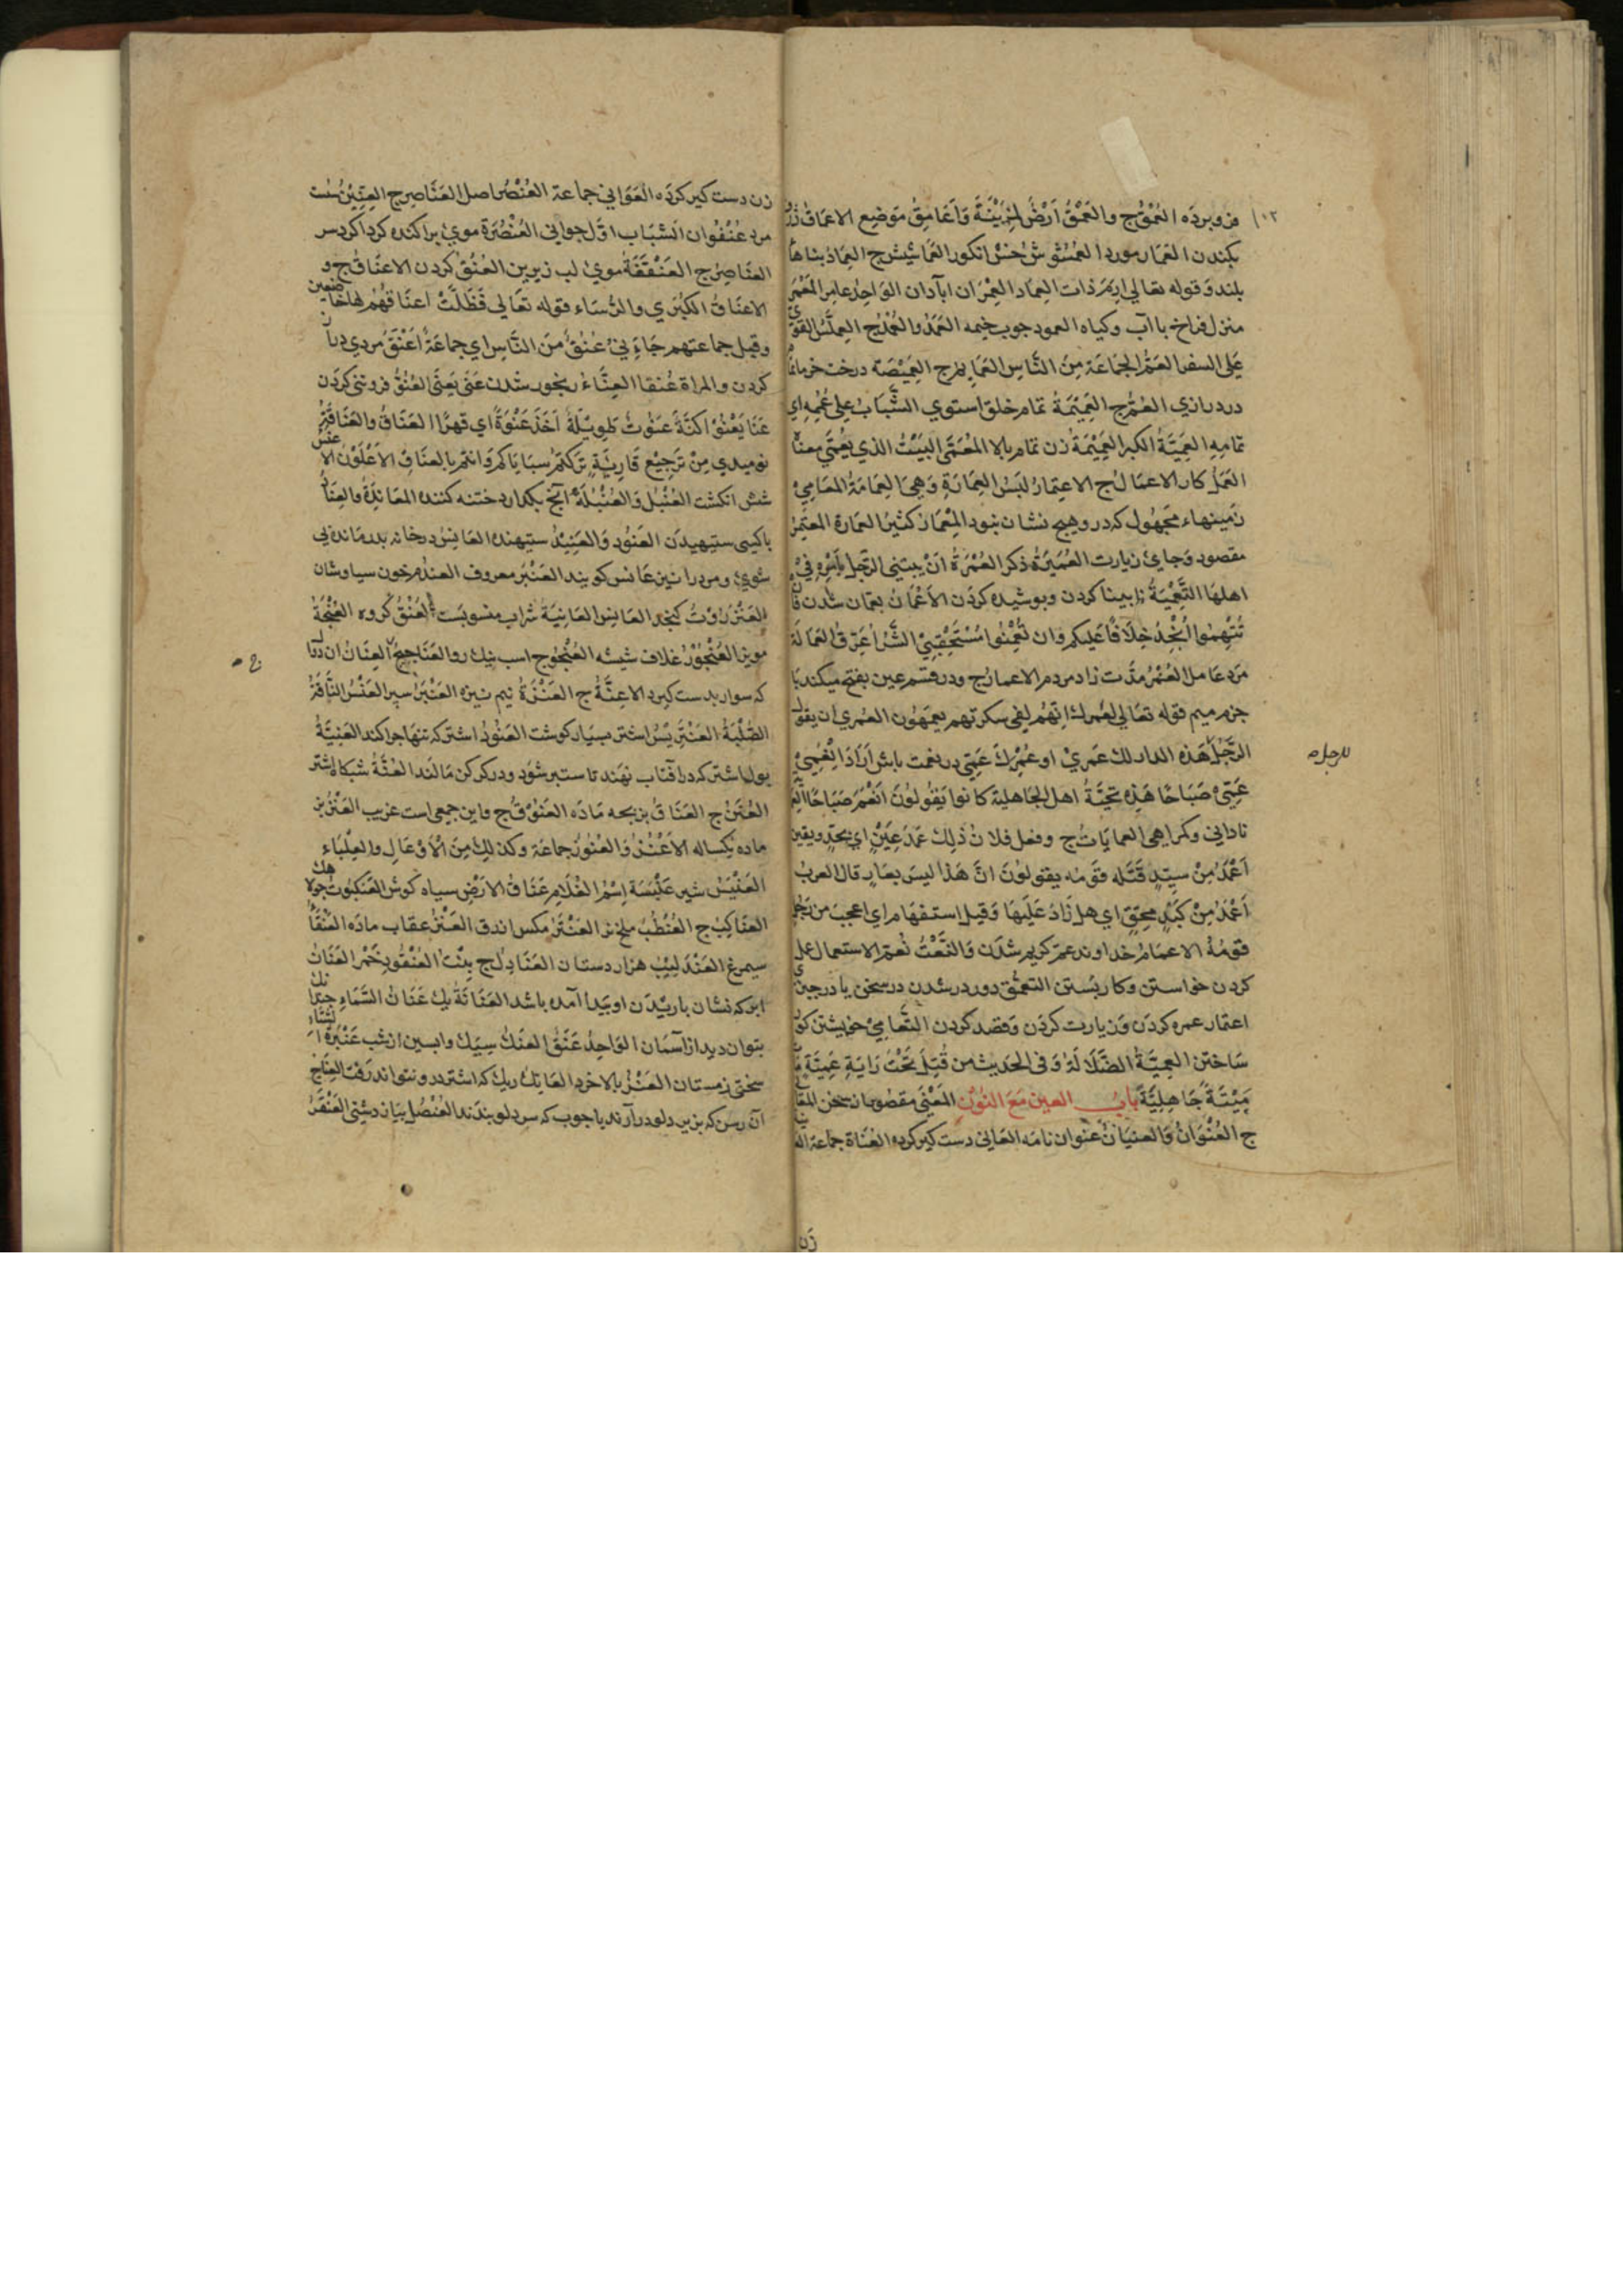 فروبرده العُمْقُ ج والعَمْقُ اَرْضُ لمُزَيْنَةَ وَاَعَامِقُ مَوضِع الاعمَاق
بكندن العمَار مورد العمشوش خنش انكور العمَاشيش ج العِمَادُ بناهَاء
بلند وَقوله تعَالي اِرَمَ ذَات العِمَاد العِمْرَان ابآدان الوَاحِدُ عامر المَعْمَر
منزل فراخ با آب وكياه العمود چوب خيمه العَمَدُ والعُمُدُ ج العملّس القوي
عَلي السفر العَمُّ الجَمَاعَة مِنَ النَّاسِ العَمَايم ج العَمِيْمَة درخت خرما
در درازي العُمُم ج العَمِيْمَةُ تمَام خلق استوي الشَّبَابُ عَلي عُمُمِه اي
تمامِهِ العِمِّيَّةُ الكبر العَمِيْمَةُ زن تمام بالا المُعَمَّى البَيْتُ الذي يعُمَّي معناه
العَمَلُ كار الاعمَالُ ج الاعتِمَارُ لبَسُ العِمَارَةِ وَهيَ العِمَامَةُ المعَامِيْ
زمينهاء مجَهُول كه در و هيچ نشان نبود المِعْمَار كثيرُ العمَارة المعتمَرُ
مقصود وَجاي زيارت العُمَيْرَةُ ذكر العُمْرَةُ اَنْ يبتني الرَّجل بامْرَاَتِهِ فِيْ
اهلهَا التَّعْمِيَةُ نابينا كردن وپوشيده كردن الاعْمَانُ بعمَان شدن
تُتْهِمُوا اُنْجِدُ خِلَافًا عَليكم وَان تُعْمِنُوا مُسْتَحْقِبِيْ الشَّرّ اُعْرِقُ العمَالَة
مزد عَامل العُمْرُ مدَّت زاد مردم الاعمار ج ودر قسم عين بفتح ميكند با
جزم ميم قوله تعَالي لعَمرك اِنَّهُم لفِي سكرتهم يعمَهُون العمري ان يقول
الرَّجُلُ هَذه الدار لك عمري او عُمْرك عَمِّي در نعمت باش اَرَادَ انْعِمِيْ
عَمِيْ صَبَاحًا هَذِه تحيّةُ اهل الجَاهلية كانوا يَقُولُوْنَ اَنْعَمَ صَبَاحًا
نادانِي وكمراهي العمايَات ج وفعل فلان ذَلِك عَمْدَ عَيْنٍ اي بجِدٍّ ويقين
اَعْمَدُ مِنْ سيّدٍ قَتَله قَومُه يقولُونَ انَّ هَذا ليسَ بعَارٍ قال العربُ
اَعْمَدُ مِنْ كَيْلٍ مُحِقٍّ اي هل زَادَ عَلَيهَا وَقيل استفهَام اي اعجبَ من رجل
قومُهُ الاعمَام خداوند عم كريم شدَن وَالنَّعْتُ مُعِمٌّ الاستعمال عمل
كردن خواستن وكار بَستن التعمُّق دور درشدن در سخن يا در چيزي
اعتمار عمره كردن وَزيارت كردن وَقصد كردن التَّعَامِيْ خويشتن كور
سَاختن العِمِّيَّةُ الضَّلَالَةُ وَفي الحَديث من قُتِلَ تَحْتَ رَايَةٍ عِمِّيَّةٍ
مِيْتَةً جَاهِلِيَّةً بابُ العين مَعَ النُّوْن المَعْنِي مقصود از سخن المعَا
ج العُنْوَانُ وَالعنيَانُ عنوان نامَه العَاني دست كيركرده العُنَاة جمَاعة
زن
للرجل
زن دست كيركرده العَوَانِي جماعة العُنْصُر اصل العَنَاصِر ج العِنِّيْنُ سست
مرد عُنْفُوان الشَّبَاب اوَّل جوانِي العُنْصُرَة موي پراكنده كرداكرد سر
العنَاصِر ج العَنْفَقَةُ موي لب زيرين العُنُقُ كردن الاعنَاقُ ج و
الاعنَاقُ الكُبَرِي والرُّسَاء قوله تعَالي فَظَلَّتْ اعنَاقهُمْ لهَاخَاضعين
وقيل جماعتهم جَاءَنِيْ عُنُقُ مِنَ النَّاسِ اي جماعَةٌ اَعْنَقُ مردي دراز
كردن والمراة عُنقا العِنَاءُ رنجور شدن عَنَي يَعنَي العُنُوُّ فروتني كردن
عَنَا يَعْنُوْ اكَنَّةٌ عَنَوتُ طَوِيْلَةٌ اَخَذَ عَنْوَةً اي قهرًا العَنَاقُ والعَنَاقَةُ
نوميدي مِنْ تَرجِيْع قَارِيَةٍ تركتم سبَايَاكم وَانتم بالعنَاقِ الاَعْلَوْن
شش انكشت العُنْبُلُ وَالعُنْبُلَةُ آنچ بكذارد ختنه كننده المعَانِدَةُ والعِنَادُ
باكسي ستيهيدَن العَنُود وَالعَنِيدُ ستيهنده العَانِسُ در خانه پدر مَانده بي
شوي ومرد رانيز عَانس كويند العَنْبَر معروف العندم خون سياوشان
العَنْزَرُوْتُ كنجد العَانِس العَانِيَةُ شراب منسوبست العُنْقُ كروه العُنْجُدُ
مويز العُنْجُوْرُ غلاف شيشه العُنْجُوج اسب نيك رو العَنَاجيج العِنَانُ ان دوال
كه سوار بدست كيرد الاعِنَّةُ ج العَنَزَةُ نيم نيزه العَنْبَرُ سپر العَنْسُ النَّاقَةُ
الصُّلْبَةُ العَنْتَرِيْسُ اشتر بسيَار كوشت العَنُودُ اشتركه تنهَا چرا كند العَنِيَّةُ
بول اشتركه در آفتاب نهند تا ستبر شود ودركركن مَالند العُنَّةُ شبكاه اشتر
العُنَنُ ج العَنَاقُ بزبچه مَادَه العُنُوْقُ ج واين جمعي است غريب العَنْزُ بز
ماده يكساله الاَعْنُزُ وَالعُنُوزُ جماعَة وكذلك مِنَ الاَوْعَالِ والظِّبَاءِ
العَنْبَسُ شير عَنْبَسَة اِسْمُ الغُلَام عَنَاقُ الارَضِ سياه كوش العَنْكَبُوتُ جولاهك
العنَاكِبُ ج العُنْظُبُ ملخ نر العَنْتَرُ مكس ازرق العَنْزُ عقاب مادَه العَنْقَاءُ
سيمرغ العَنْدَلِيْبُ هزاردستان العَنَادِلُ ج بنْتُ العُنْقُودِ خَمْر العَنَانُ
ابركه نشان باريدَن اوپَيدا آمده باشد العَنَانَةُ يك عَنَانُ السَّمَاءِ
بتوان ديد از آسمَان الوَاحِدُ عَنَقُ العنك سِيَك وابسين از شب عَنْبَرَةُ الشتاء
سختي زمستان العَنْزُ بالا خرد العَانِكُ ريك كه اشتر درو نتواند رَفت العِنَاج
آن رسن كه بزير دلو درآرند يا چوب كه سر دلو بندَند العُنْصُل پيَاز دشتي العَنْقَر